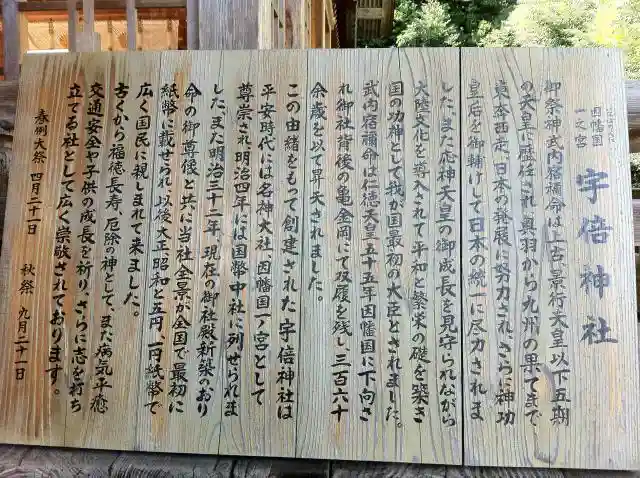 因幡国
一之宮
宇倍神社
御祭神武内宿禰命は上古、景行天皇以下五期
の天皇に歴任され、奥羽から九州の果てまで
東奔西走、日本の発展に努力され、さらに神功
皇后を御輔けして、日本の統一に尽力されま
した。また応神天皇の御成長を見守られながら
大陸文化を導入されて平和と繁栄の礎を築き
国の功神として我が国最初の大臣とされました。
武内宿禰命は仁徳天皇五十五年因幡国に下向さ
れ御社背後の亀金岡にて双履を残し、三百六十
余歳を以て昇天されました。
この由緒をもって創建された宇倍神社は
平安時代には名神大社、因幡国一ノ宮として
尊崇され明治四年には国幣中社に列せられま
した。また明治三十二年、現在の御社殿新築のおり
命の御尊像と共に当社全景が全国で最初に
紙幣に載せられ、以後大正昭和と五円、一円紙幣で
広く国民に親しまれて来ました。
古くから福徳長寿、厄除の神として、また病気平癒
交通安全や子供の成長を祈り、さらに志を打ち
立てる社として広く崇敬されております。
春例大祭 四月二十一日 秋祭 九月二十一日